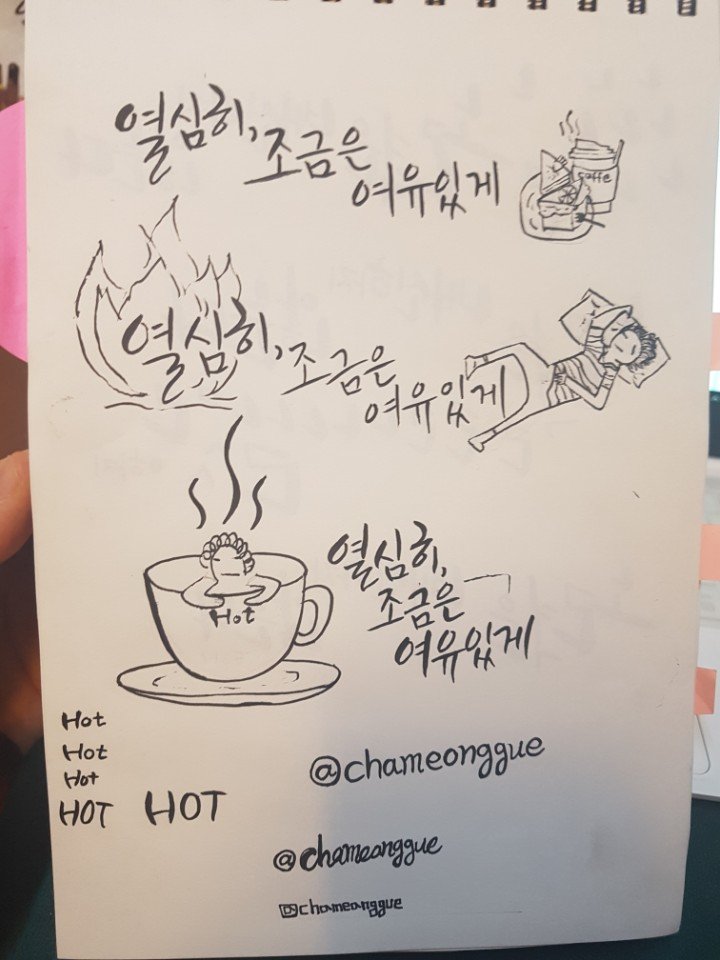 열심히,
조금은
여유있게
caffe
열심히,
조금은
여유있게
열심히,
조금은
여유있게
Hot
Hot
Hot
Hot
HOT HOT
@chameonggue
@chameonggue
chameonggue